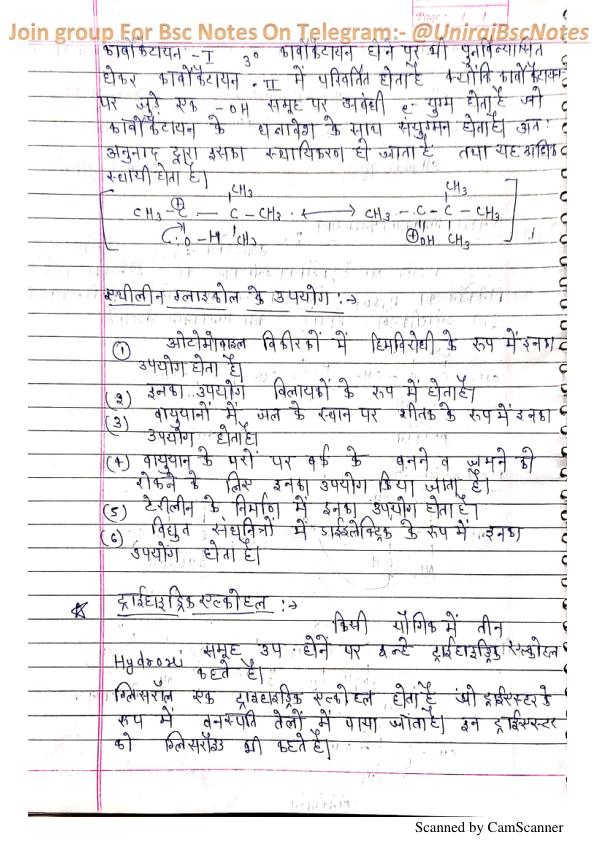 Join group For Bsc Notes On Telegram:- @UnirajBscNotes
कार्बोकैटायन - I 3° कार्बोकैटायन होने पर भी पुनर्विन्यासित
होकर कार्बोकैटायन - II में परिवर्तित होता है क्योंकि कार्बोकैटायन
पर जुड़े एक -OH समूह पर अबंधी e- युग्म होता है जो
कार्बोकैटायन के धनावेश के साथ संयुग्मन होता है। अतः
अनुनाद द्वारा इसका स्थायिकरण हो जाता है तथा यह अधिक
स्थायी होता है।
CH3 CH3
CH3 - C — C - CH3 ⟷ CH3 - C - C - CH3
⊕
:O-H CH3 ⊕OH CH3
एथीलीन ग्लाइकोल के उपयोग :→
(1) ओटोमोबाइल विकीरकों में हिमविरोधी के रूप में इनका
उपयोग होता है।
(2) इनका उपयोग विलायकों के रूप में होता है।
(3) वायुयानों में जल के स्थान पर शीतक के रूप में इनका
उपयोग होता है।
(4) वायुयान के परों पर बर्फ के बनने व जमने को
रोकने के लिए इनका उपयोग किया जाता है।
(5) टेरीलीन के निर्माण में इनका उपयोग होता है।
(6) विधुत संधनित्रों में डाईइलेक्ट्रिक के रूप में इनका
उपयोग होता है।
ट्राईहाइड्रिक एल्कोहल :→
किसी यौगिक में तीन
Hydroxi समूह उप. होने पर इन्हे ट्राईहाइड्रिक एल्कोहल
कहते है।
ग्लिसरॉल एक ट्राइहाइड्रिक एल्कोहल होता है जो ट्राईएस्टर के
रूप में वनस्पति तेलों में पाया जाता है। इन ट्राईएस्टर
को ग्लिसराइड भी कहते है।
Scanned by CamScanner